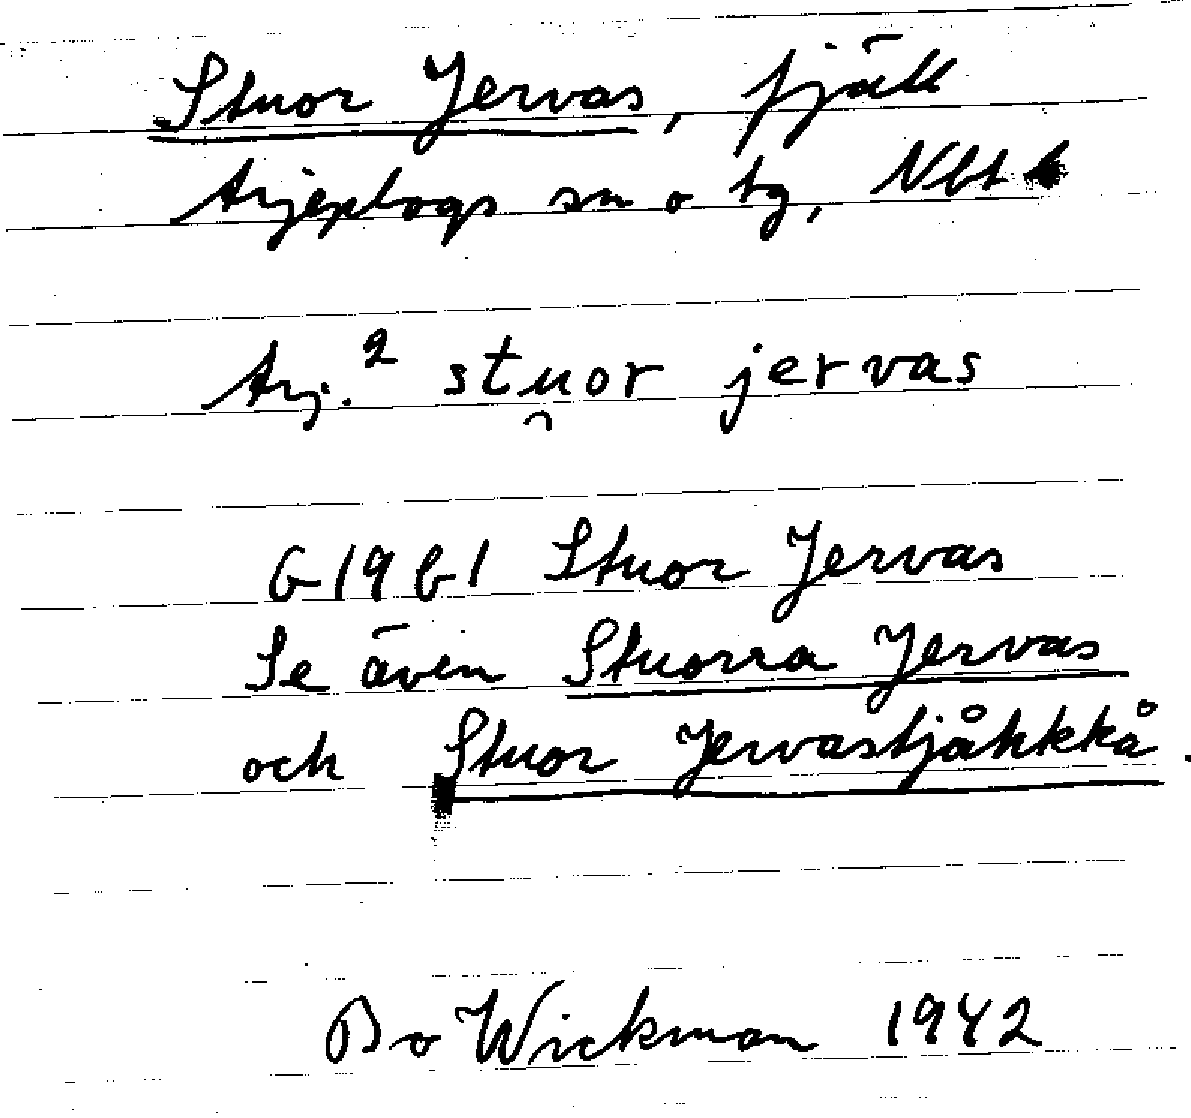 Stuor Jervas, fjäll
Arjeplogs sn o tg, Nbt
Arj.² stu̯or jervas
G 19 b 1 Stuor Jervas
Se även Stuorra Jervas
och Stuor Jervastjåhkkå.
Bo Wickman 1942